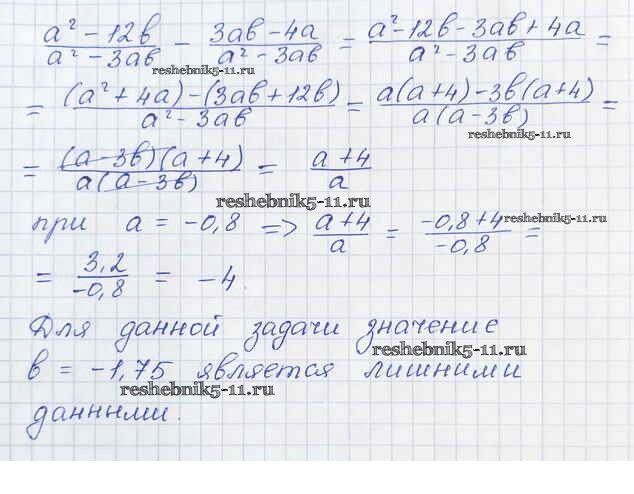 a² - 12b / a² - 3ab - 3ab - 4a / a² - 3ab = a² - 12b - 3ab + 4a / a² - 3ab =
reshebnik5-11.ru
= (a² + 4a) - (3ab + 12b) / a² - 3ab = a(a+4) - 3b(a+4) / a(a - 3b) =
reshebnik5-11.ru
= (a - 3b)(a + 4) / a(a - 3b) = a + 4 / a
reshebnik5-11.ru
при a = -0,8 => a+4 / a = -0,8 + 4 / -0,8 =
reshebnik5-11.ru
= 3,2 / -0,8 = -4.
Для данной задачи значение
reshebnik5-11.ru
b = -1,75 является лишними
reshebnik5-11.ru
данными.